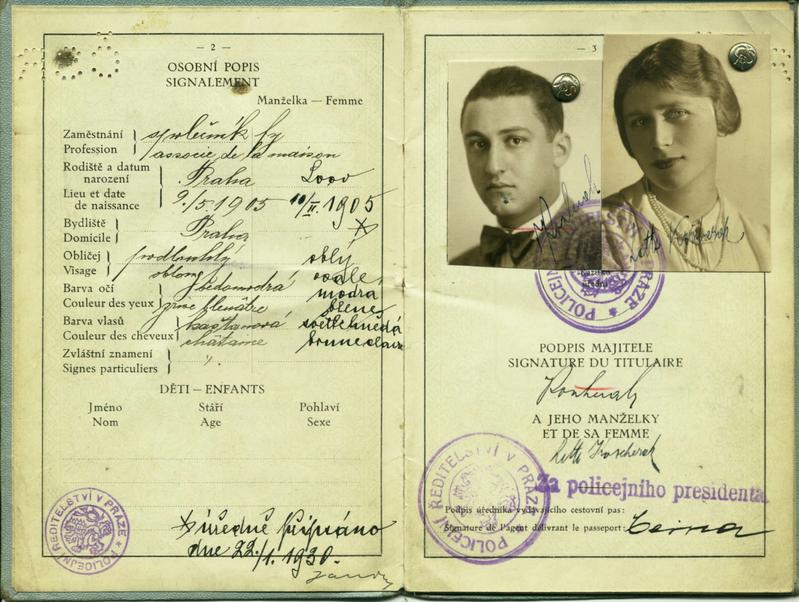 — 2 —
OSOBNÍ POPIS
SIGNALEMENT
Manželka — Femme
Zaměstnání
Profession
společník fy
associé de la maison
Rodiště a datum
narození
Praha
Lieu et date
de naissance
9./5. 1905
10/II. 1905
Bydliště
Domicile
Praha
Obličej
Visage
podlouhlý
oblý
oblong
ovale
Barva očí
Couleur des yeux
šedomodrá
modrá
Barva vlasů
Couleur des cheveux
kaštanová
světlehnědá
châtame
brune claire
Zvláštní znamení
Signes particuliers
DĚTI – ENFANTS
Jméno Stáří Pohlaví
Nom Age Sexe
úředně připsáno
dne 22./1. 1930.
POLICEJNÍ ŘEDITELSTVÍ V PRAZE
— 3
PODPIS MAJITELE
SIGNATURE DU TITULAIRE
A JEHO MANŽELKY
ET DE SA FEMME
POLICEJNÍ ŘEDITELSTVÍ V PRAZE
Za policejního presidenta
Podpis úředníka vydávajícího cestovní pas:
Signature de l'agent délivrant le passeport: